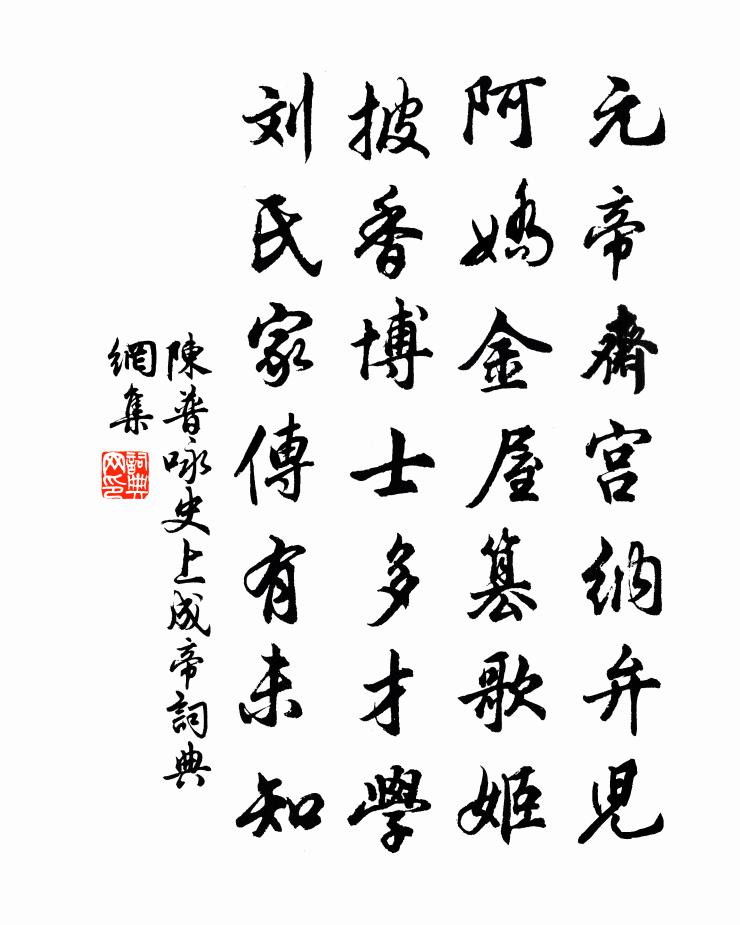 元帝齋宮納弁児
阿嬌金屋篡歌姬
披香博士多才學
刘氏家傳有未知
陳普咏史上成帝詞典
網集
詞典網印